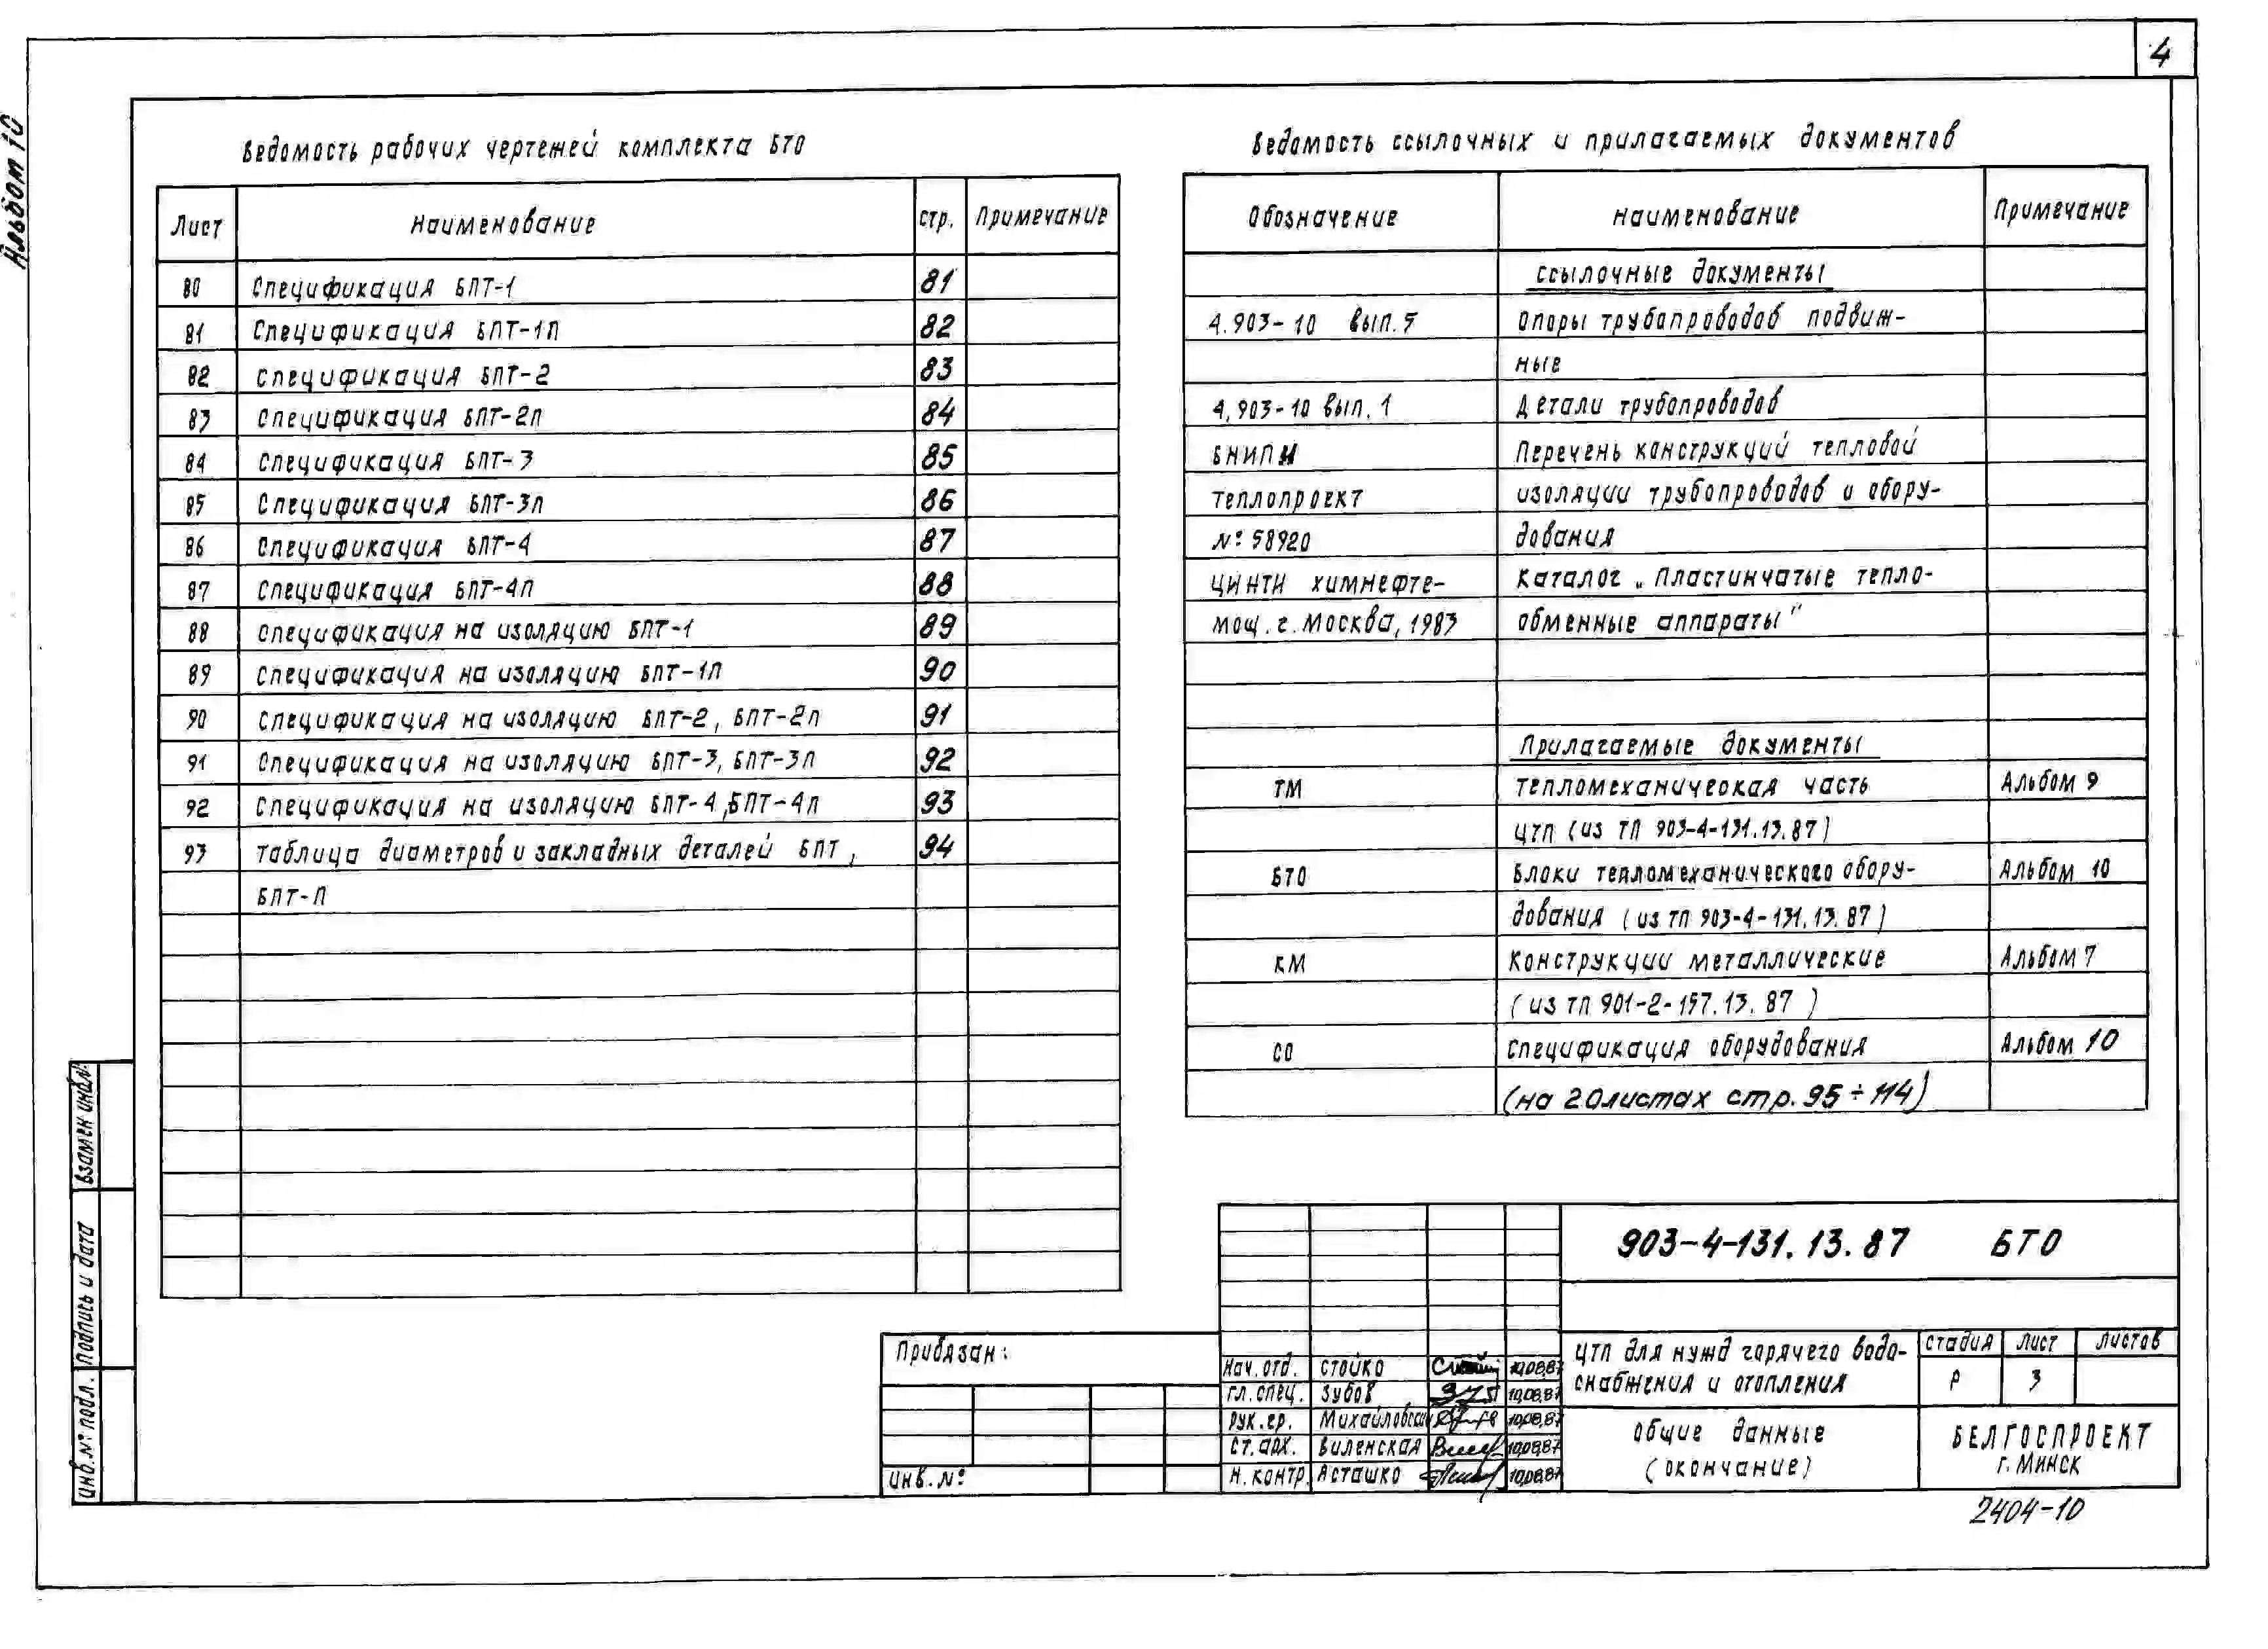 4
Альбом 10
Ведомость рабочих чертежей комплекта БТО
Лист Наименование стр. Примечание
80 Спецификация БПТ-1 81
81 Спецификация БПТ-1П 82
82 Спецификация БПТ-2 83
83 Спецификация БПТ-2П 84
84 Спецификация БПТ-3 85
85 Спецификация БПТ-3П 86
86 Спецификация БПТ-4 87
87 Спецификация БПТ-4П 88
88 Спецификация на изоляцию БПТ-1 89
89 Спецификация на изоляцию БПТ-1П 90
90 Спецификация на изоляцию БПТ-2, БПТ-2П 91
91 Спецификация на изоляцию БПТ-3, БПТ-3П 92
92 Спецификация на изоляцию БПТ-4, БПТ-4П 93
93 Таблица диаметров и закладных деталей БПТ, 94
БПТ-П
Ведомость ссылочных и прилагаемых документов
Обозначение Наименование Примечание
Ссылочные документы
4.903-10 вып.5 Опоры трубопроводов подвиж-
ные
4.903-10 вып.1 Детали трубопроводов
ВНИПИ Перечень конструкций тепловой
теплопроект изоляции трубопроводов и обору-
№58920 дования
ЦИНТИ химнефте- Каталог „Пластинчатые тепло-
мощ. г. Москва, 1983 обменные аппараты"
Прилагаемые документы
ТМ Тепломеханическая часть Альбом 9
ЦТП (из ТП 903-4-131.13.87)
БТО Блоки тепломеханического обору- Альбом 10
дования (из ТП 903-4-131.13.87)
КМ Конструкции металлические Альбом 7
(из ТП 901-2-157.13.87)
СО Спецификация оборудования Альбом 10
(на 20листах стр. 95÷114)
Взамен инв.№
Подпись и дата
Инв.№ подл.
Привязан:
Инв.№
Нач. отд. Стойко 10.08.87
Гл. спец. Зубов 10.08.87
Рук. гр. Михайловская 10.08.87
Ст. арх. Виленская 10.08.87
Н. контр. Асташко 10.08.87
903-4-131.13.87 БТО
ЦТП для нужд горячего водо-
снабжения и отопления
Стадия Лист Листов
Р 3
Общие данные
(окончание)
БЕЛГОСПРОЕКТ
г. Минск
2404-10